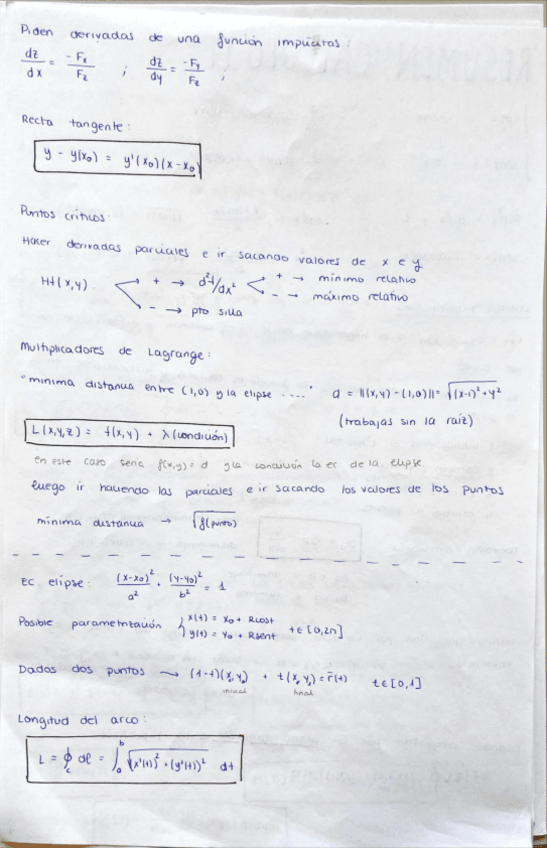 Piden derivadas de una función implícitas:
dz/dx = -Fx/Fz ; dz/dy = -Fy/Fz ;
Recta tangente:
y - y(x₀) = y'(x₀)(x-x₀)
Puntos críticos:
Hacer derivadas parciales e ir sacando valores de x e y
Hf(x,y) + → d²f/dx² + → mínimo relativo
- → máximo relativo
- → pto silla
Multiplicadores de Lagrange:
"mínima distancia entre (1,0) y la elipse ...." d = ||(x,y) - (1,0)|| = √(x-1)² + y²
(trabajas sin la raíz)
L(x,y,z) = f(x,y) + λ(condición)
en este caso sería f(x,y) = d y la condición la ec de la elipse.
luego ir haciendo las parciales e ir sacando los valores de los puntos
mínima distancia → √f(punto)
EC elipse: (x-x₀)²/a² + (y-y₀)²/b² = 1
Posible parametrización { x(t) = x₀ + Rcost
y(t) = y₀ + Rsent t∈[0,2π]
Dados dos puntos → (1-t)(x₀,y₀) + t(x₁,y₁) = r̄(t) t∈[0,1]
inicial final
Longitud del arco:
L = ∮c dl = ∫ₐᵇ √(x'(t))² + (y'(t))² dt